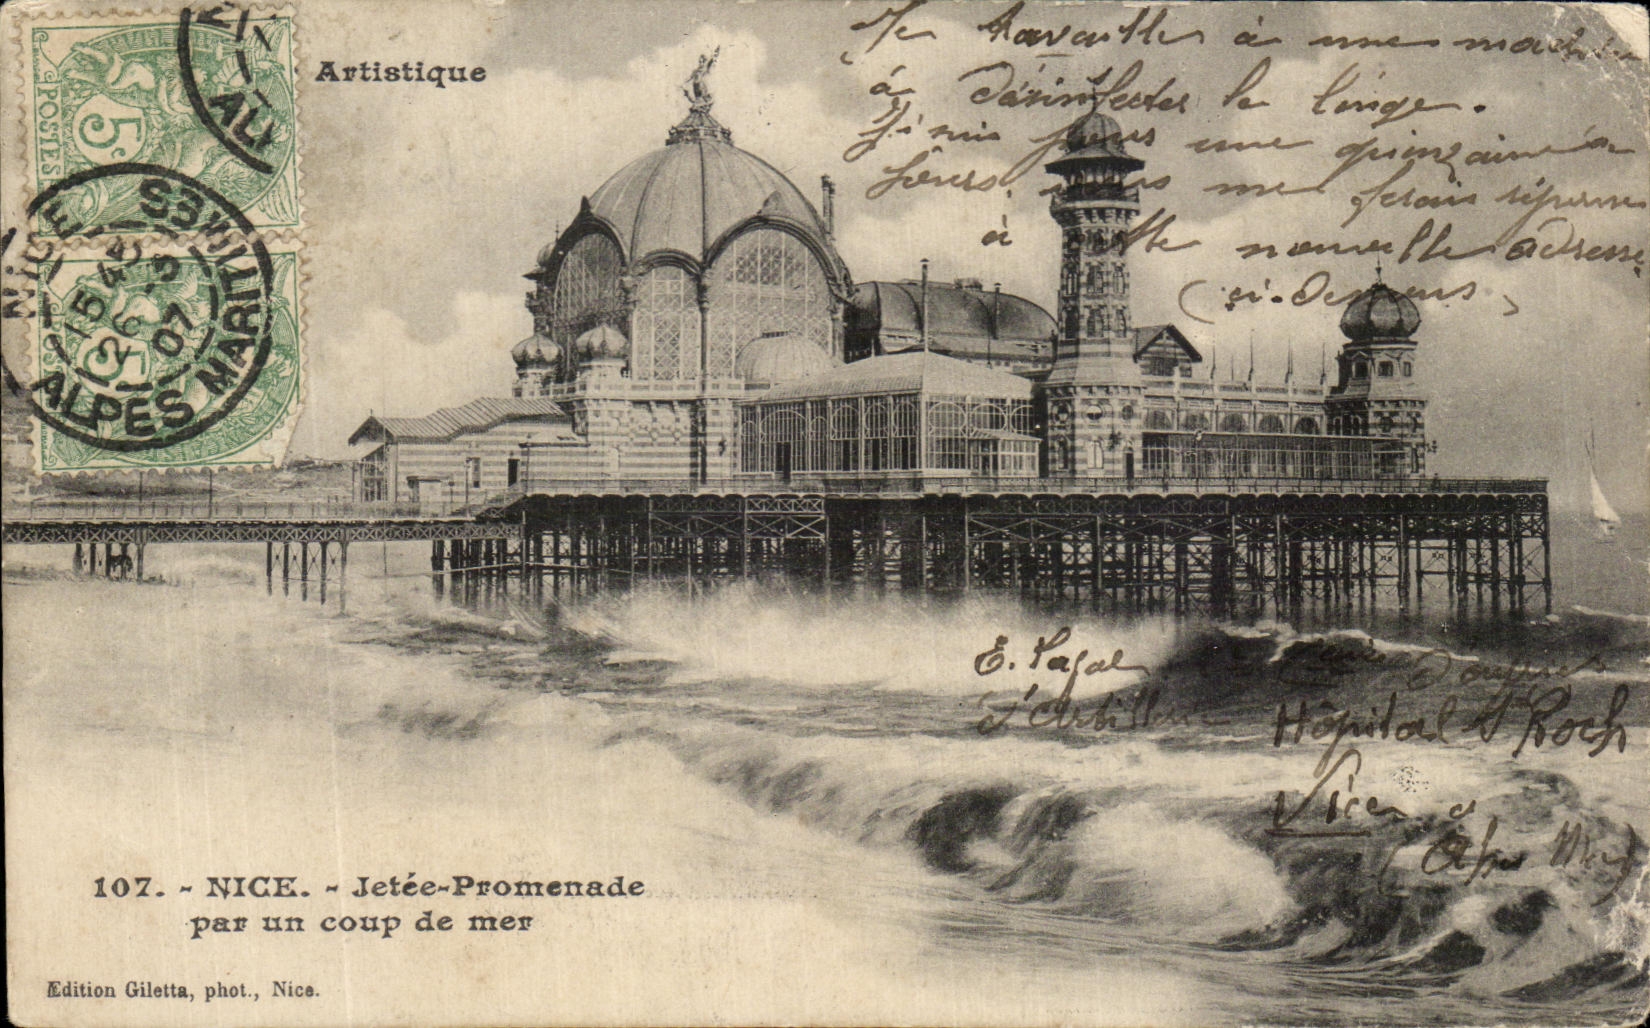 Artistique
POSTES
5c
ALP
NICE
ALPES MARITIMES
15 45
26 -5
07
5c
Je travaille à une machine
à désinfecter le linge.
J'suis pour une quinzaine
à
à cette nouvelle adresse
(ci-dessus)
E.
d'Artillerie
Hôpital St Roch
Nice
(Alpes Mar)
107. - NICE. - Jetée-Promenade
par un coup de mer
Edition Giletta, phot., Nice.